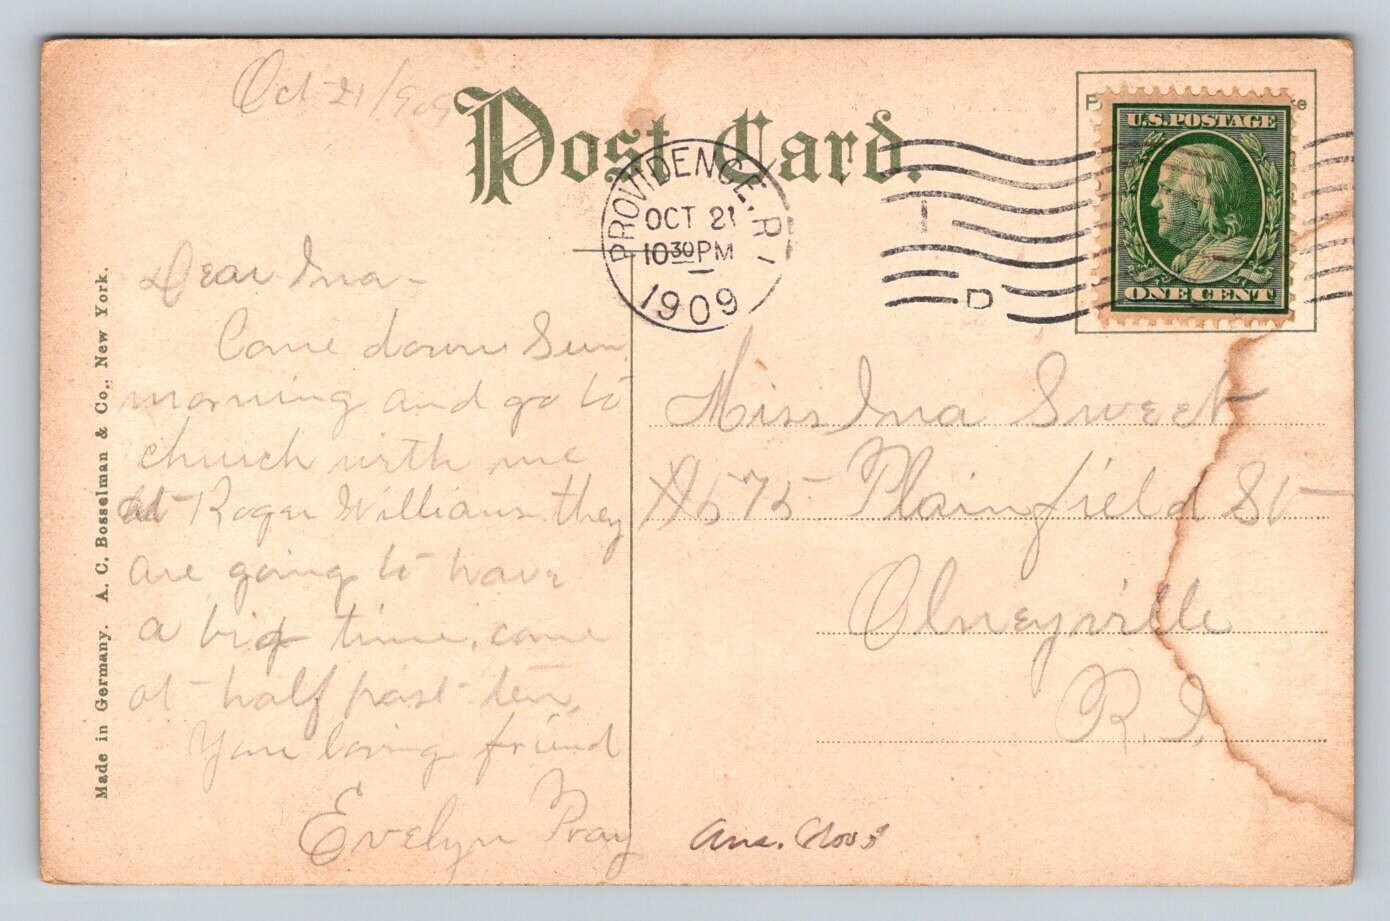 Oct 21/909
Post Card.
PROVIDENCE, R.I.
OCT 21
10 30 PM
1909
D
U.S. POSTAGE
ONE CENT
Dear Ina-
Come down Sun
morning and go to
church with me
at Roger Williams they
are going to have
a big time, come
at half past ten.
Your loving friend
Evelyn Pray
Miss Ina Sweet
#575 Plainfield St
Olneyville
R.I.
Ans. Nov 3
Made in Germany. A. C. Bosselman & Co., New York.